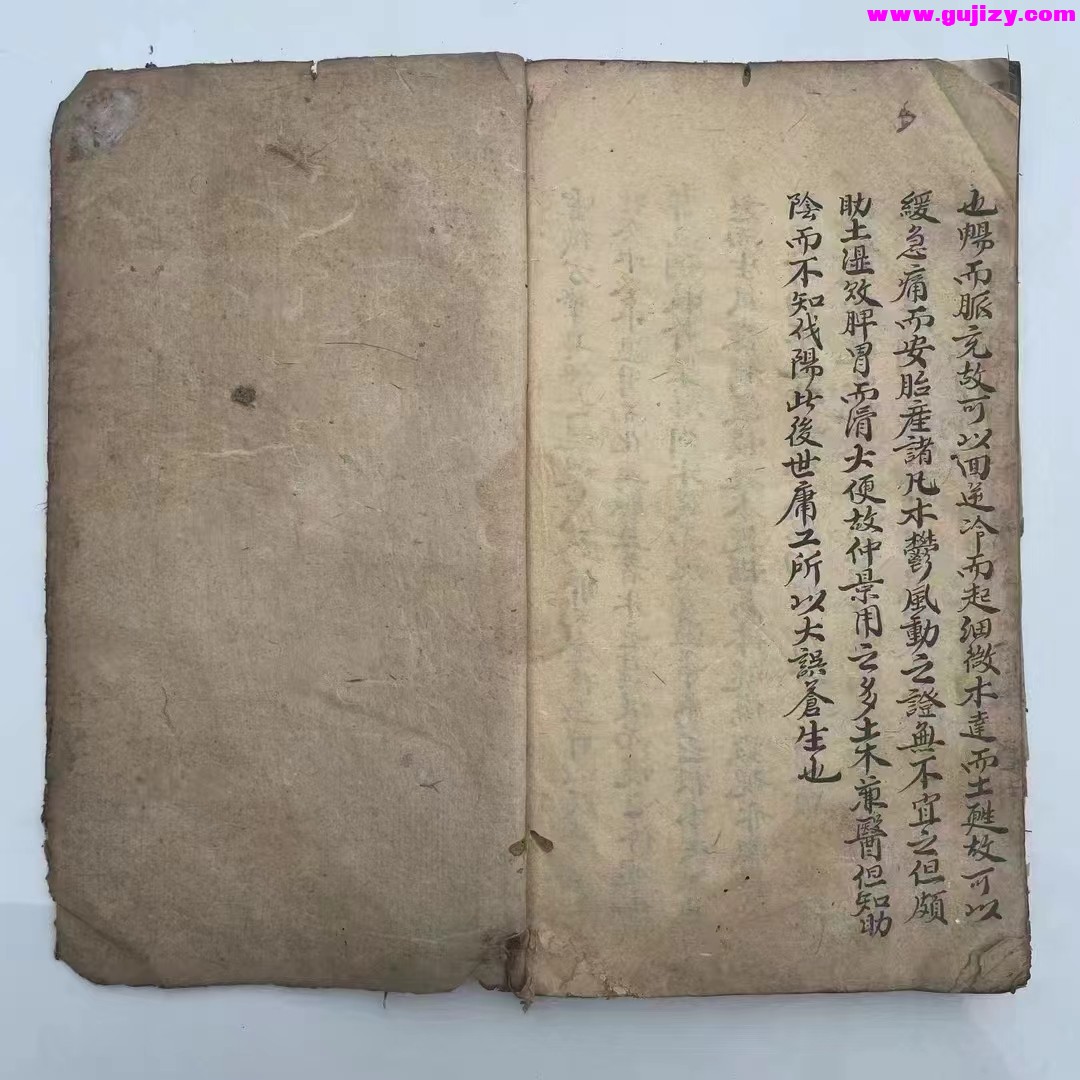 www.gujizy.com
也暢而脈充故可以回逆冷而起細微木達而土甦故可以
緩急痛而安胎産諸凡木鬱風動之證無不宜之但頗
助土濕敗脾胃而滑大便故仲景用之多土木兼醫但知助
陰而不知伐陽此後世庸工所以大誤蒼生也